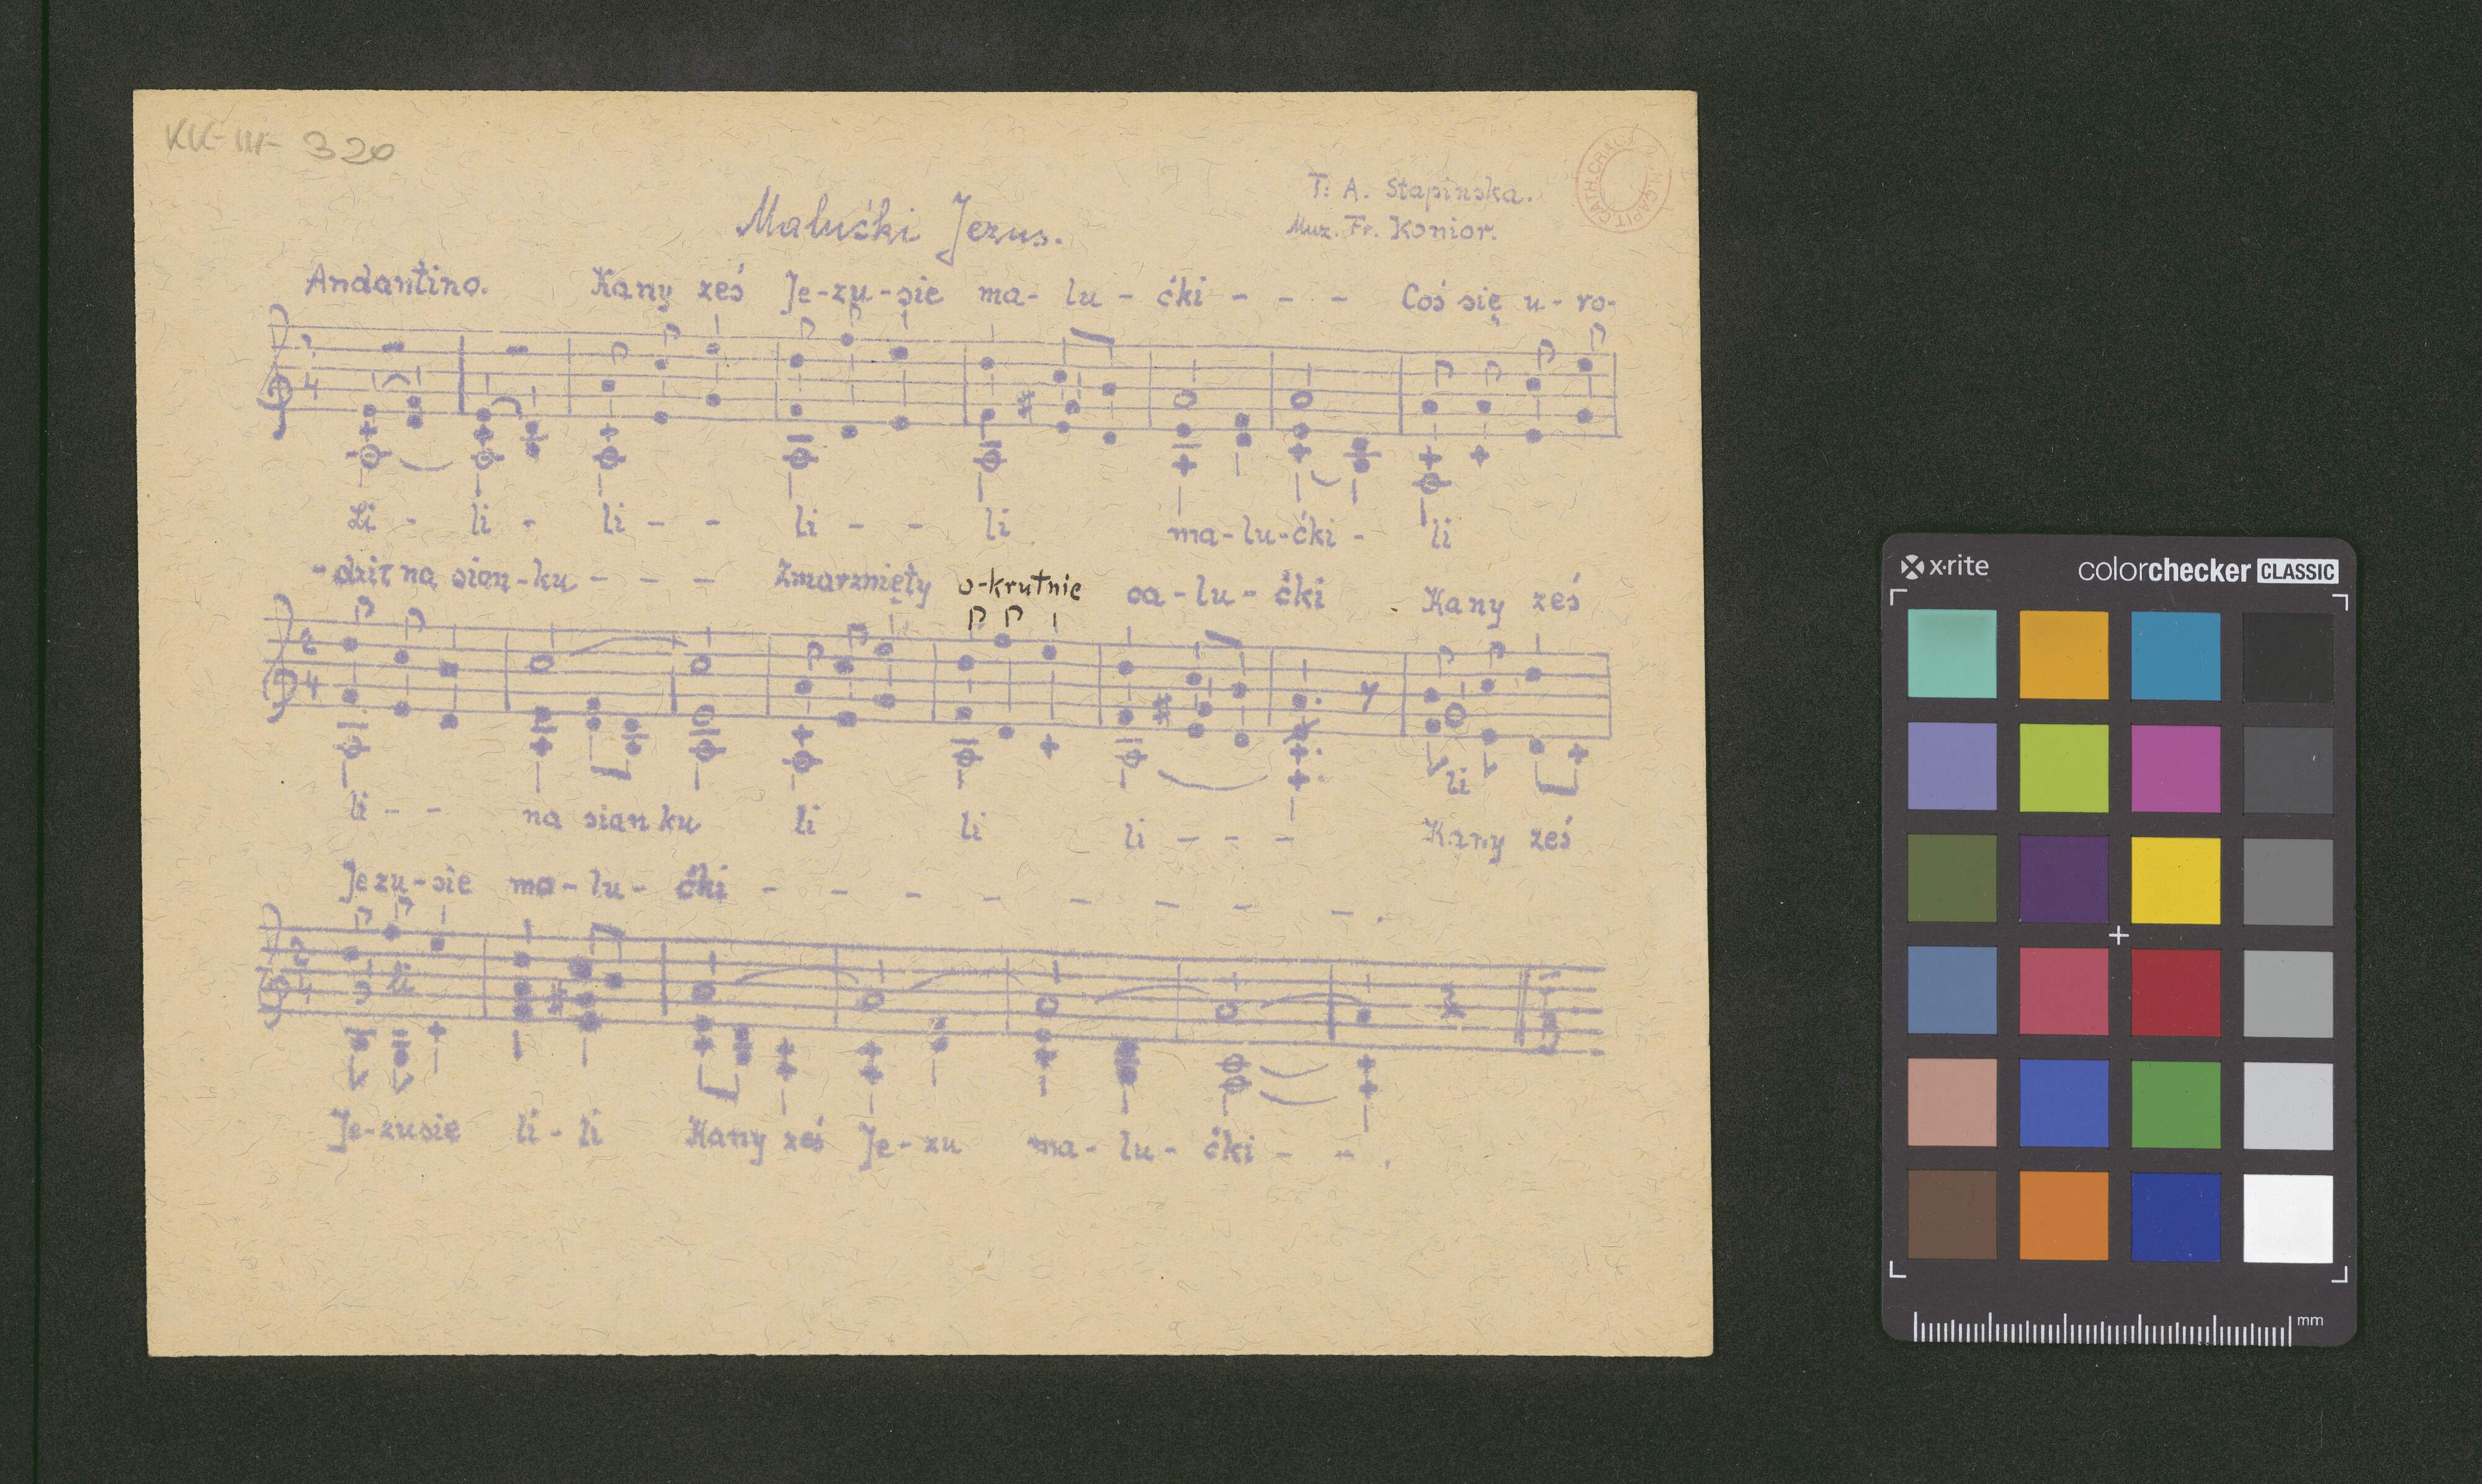 KK-III-320
T: A. Stapinska.
Muz. Fr. Konior.
Maluśki Jezus.
Andantino. Kanyześ Je-zu-sie ma-lu-ćki - - - Coś się u-ro-
2 4
Li - li - li - - li - - li ma-lu-ćki - li
-dził na sian-ku - - - Zmarznięty o-krutnie ca-lu-ćki Kany ześ
2 4
li
li - - na sianku li li li - - - Kany ześ
Jezu-sie ma-lu-ćki - - - - - - - - - .
2 4
li
Je-zusie li-li Kany ześ Je-zu ma-lu-ćki - - .
x·rite colorchecker CLASSIC
mm